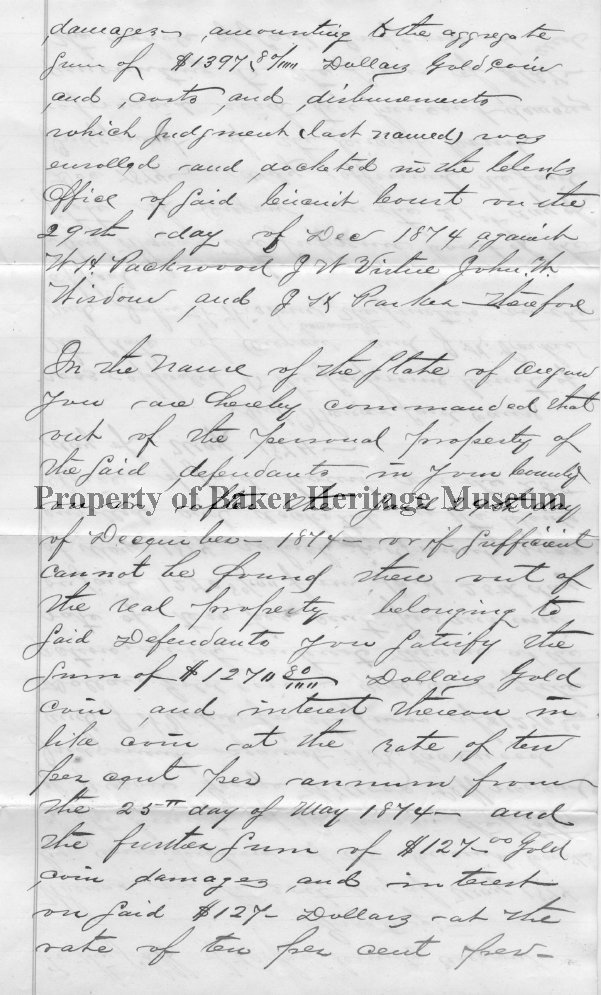 damages amounting to the aggregate
Sum of $1397 87/100 Dollars Gold coin
and costs and disbursements
which Judgment (last named) was
enrolled and docketed in the Clerks
Office of Said Circuit Court on the
29th day of Dec 1874 against
W H Packwood J W Virtue John W
Wisdom and J K Parker Therefore
In the Name of the State of Oregon
You are hereby commanded that
out of the personal property of
the Said defendants in your County
Property of Baker Heritage Museum
on or after the Said 29th day
of December 1874 or if Sufficient
cannot be found then out of
the real property belonging to
Said Defendants You Satisfy the
Sum of $1270 80/100 Dollars Gold
coin and interest thereon in
like coin at the rate of ten
per cent per annum from
the 25th day of May 1874 and
the further Sum of $127.00 Gold
coin damages and interest
on Said $127 Dollars at the
rate of ten per cent per